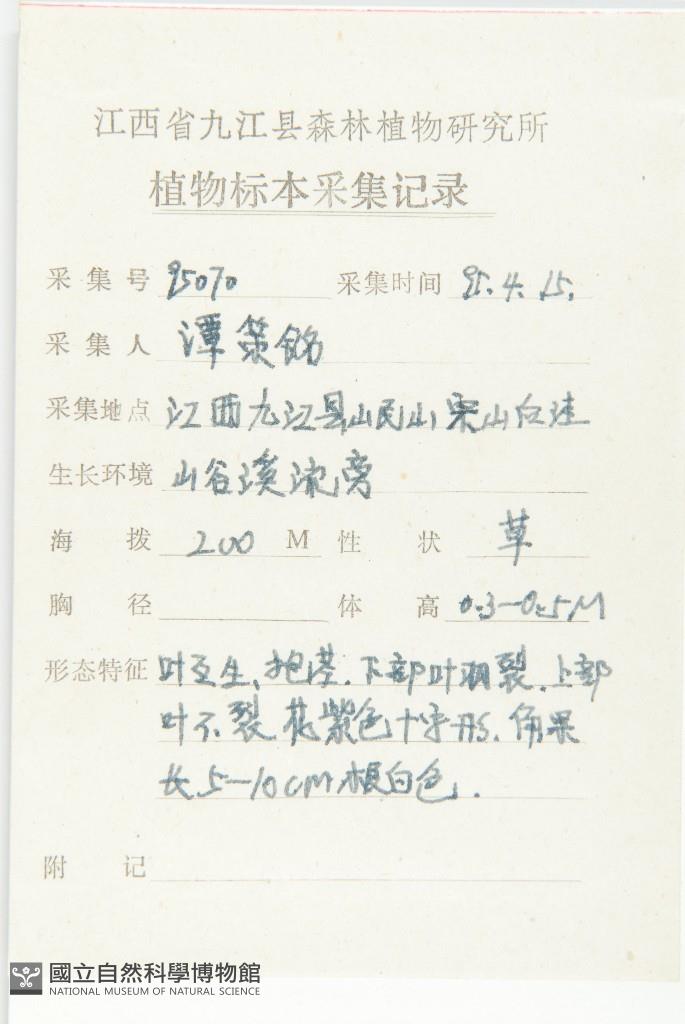 江西省九江县森林植物研究所
植物标本采集记录
采集号 95070 采集时间 95.4.15.
采集人 潭策铭
采集地点 江西九江县岷山, 栗山白洼
生长环境 山谷溪流旁
海拨 200 M 性状 草
胸径 体高 0.3—0.5M
形态特征 叶互生、抱茎.下部叶羽裂.上部
叶不裂 花紫色十字形.角果
长5—10CM根白色.
附记
國立自然科學博物館
NATIONAL MUSEUM OF NATURAL SCIENCE